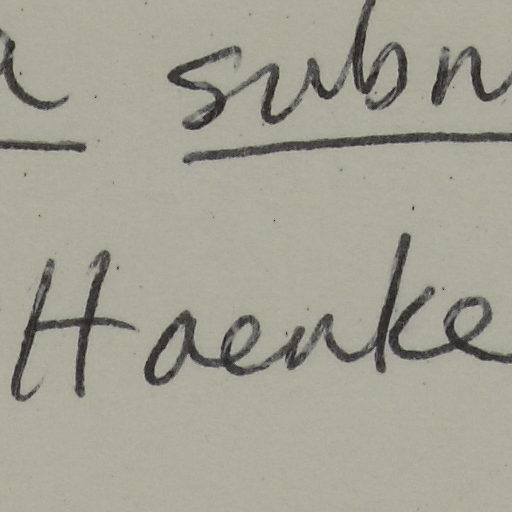 a subn
Haenke